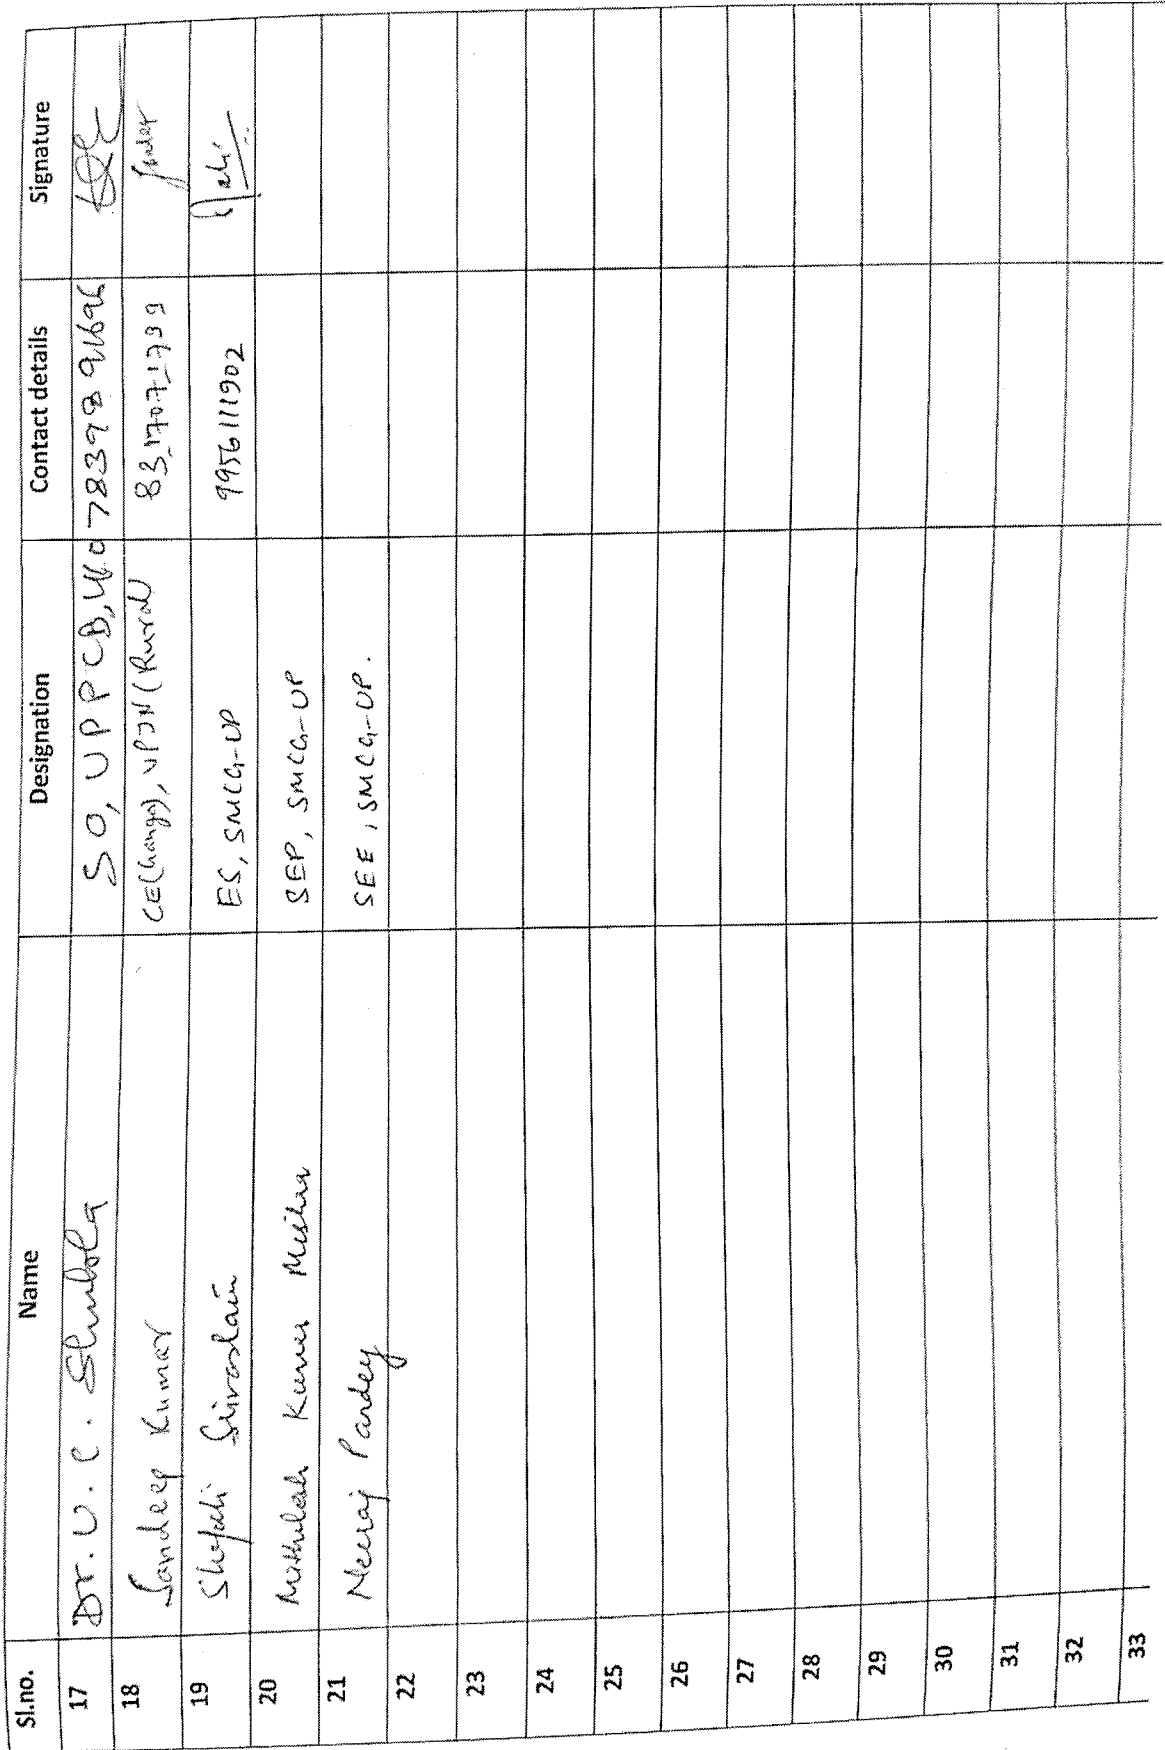 Sl.no. Name Designation Contact details Signature
17 Dr. U. C. Shukla SO, UPPCB, LKO 7839891696
18 Sandeep Kumar CE(Ganga), UPJN (Rural) 83_1707_1799
19 Shefali Srivastava ES, SMCG-UP 9956111902
20 Mithilesh Kumar Mishra SEP, SMCG-UP
21 Neeraj Pandey SEE, SMCG-UP.
22
23
24
25
26
27
28
29
30
31
32
33